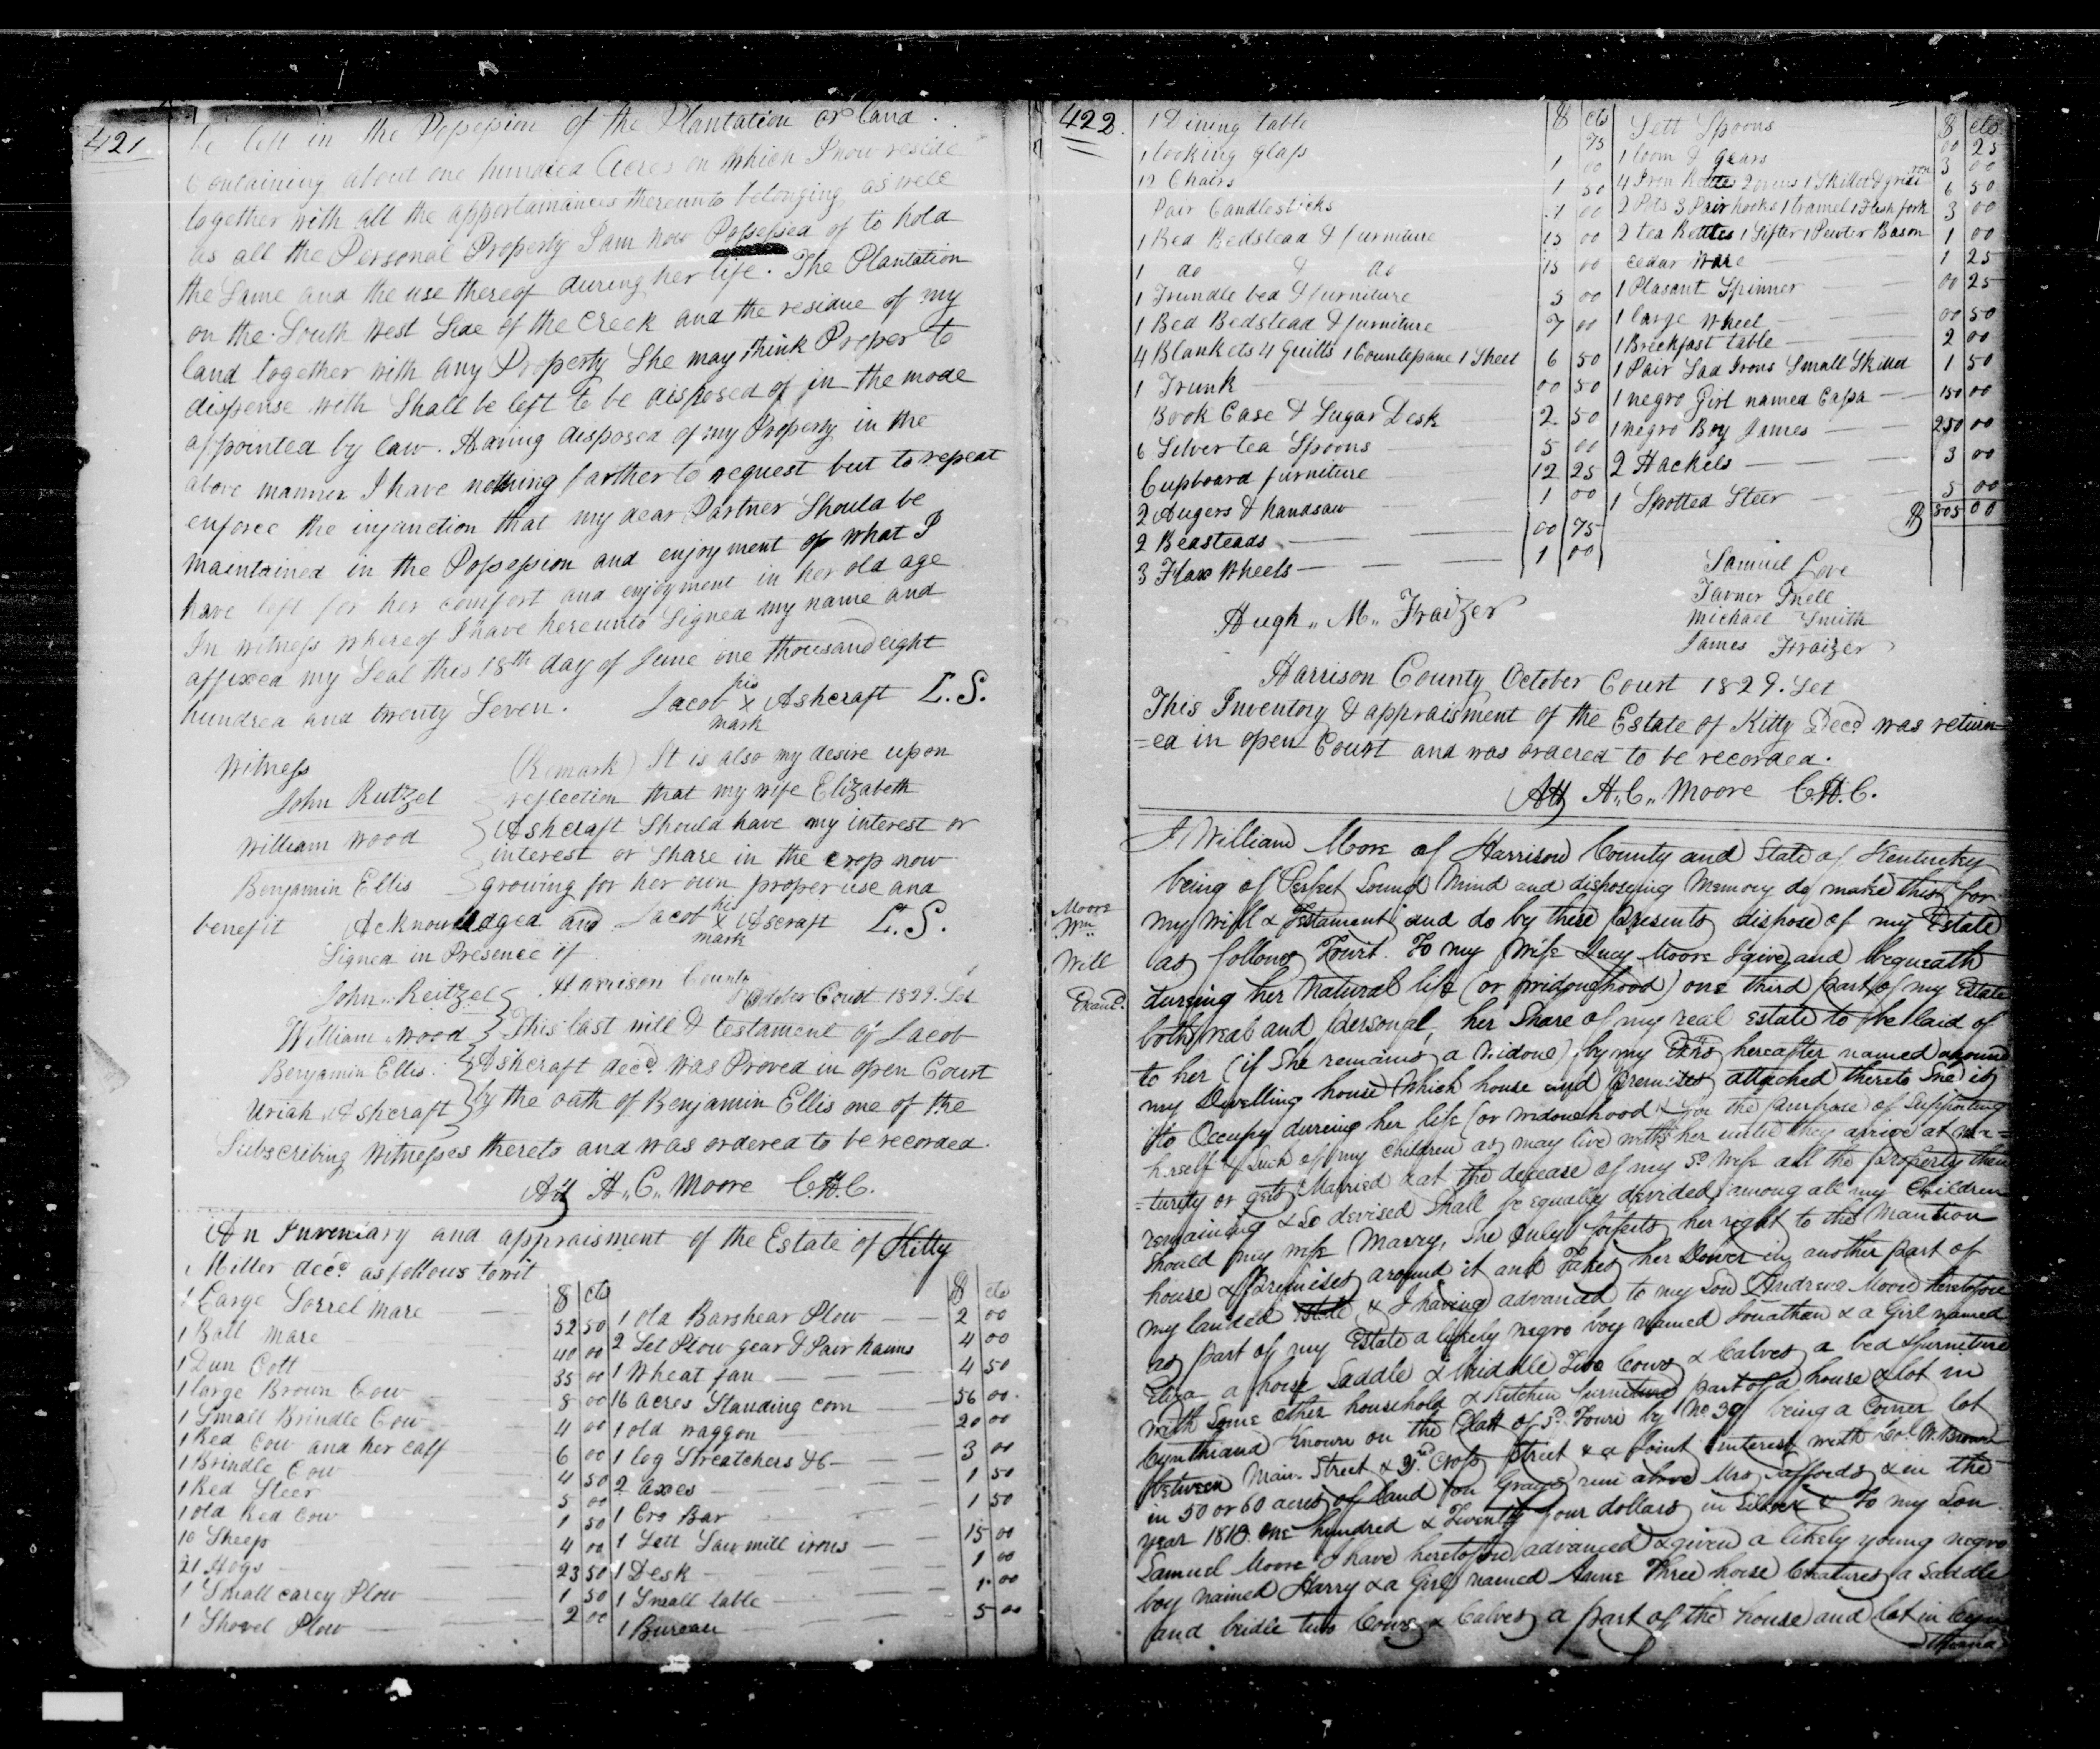 421
be left in the Possession of the Plantation or land
Containing about one hundred Acres on which I now reside
together with all the appertainances thereunto belonging as well
as all the Personal Property I am now Possessed of to hold
the Same and the use thereof during her life. The Plantation
on the South West Side of the Creek and the residue of my
land together with any Property She may think Proper to
dispense with Shall be left to be disposed of in the mode
appointed by law. Having disposed of my Property in the
above manner I have nothing farther to request but to repeat
enforce the injunction that my dear Partner Should be
maintained in the Possession and enjoyment of what I
have left for her comfort and enjoyment in her old age
In witness whereof I have hereunto Signed my name and
affixed my Seal this 18th day of June one thousand eight
hundred and twenty Seven. Jacob his X mark Ashcraft L.S.
Witness
John Reitzel
William Wood
Benjamin Ellis
(Remark) It is also my desire upon
reflection that my wife Elizabeth
Ashcraft Should have my interest or
interest or share in the crop now
growing for her own proper use and
benefit Acknowledged and Jacob his X mark Ascraft L.S.
Signed in Presence of
John Reitzel
William Wood
Benjamin Ellis
Uriah Ashcraft
Harrison County
October Court 1829. Sct
This last will & testament of Jacob
Ashcraft decd. was Proved in open Court
by the oath of Benjamin Ellis one of the
Subscribing Witnesses thereto and was ordered to be recorded.
Att H. C. Moore C.H.C.
An Inventary and appraisment of the Estate of Kitty
Miller decd. as follows towit
$ cts
1 Large Sorrel mare 52 50
1 Ball mare 40 00
1 Dun Colt 35 00
1 large Brown Cow 8 00
1 Small Brindle Cow 4 00
1 Red Cow and her calf 6 00
1 Brindle Cow 4 50
1 Red Steer 5 00
1 old Red Cow 1 50
10 Sheep 4 00
21 Hogs 23 50
1 Small carey Plow 1 50
1 Shovel Plow 2 00
$ cts
1 old Barshear Plow 2 00
2 Set Plow gear & Pair hames 4 00
1 Wheat fan 4 50
16 acres Standing corn 56 00
1 old waggon 20 00
1 log Streatchers &c 3 00
2 axes 1 50
1 Cro Bar 1 50
1 Sett Saw mill irons 15 00
1 Desk 1 00
1 Small table 1 00
1 Bureau 5 00
422.
$ cts
1 Dining table 75
1 looking glass 1 00
12 Chairs 1 50
Pair Candlesticks 1 00
1 Bed Bedstead & furniture 15 00
1 do & do 15 00
1 Trundle bed & furniture 5 00
1 Bed Bedstead & furniture 7 00
4 Blankets 4 Quilts 1 Countepane 1 Sheet 6 50
1 Trunk 00 50
Book Case & Sugar Desk 2 50
6 Silver tea Spoons 5 00
Cupboard furniture 12 25
2 Augers & handsaw 1 00
2 Beasteads 00 75
3 Flax Wheels 1 00
$ cts
Sett Spoons 00 25
1 loom & gears 3 00
4 Iron Kettles 2 ovens 1 Skillet & grid iron 6 50
2 Pots 3 Pair hooks 1 tramel 1 flesh fork 3 00
2 tea Kettles 1 Sifter 1 Pewter Bason 1 00
cedar Ware 1 25
1 Plasant Spinner 00 25
1 large wheel 00 50
1 Breckfast table 2 00
1 Pair Sad Irons Small Skillet 1 50
1 negro Girl named Cassa 150 00
1 negro Boy James 250 00
2 Hackels 3 00
1 Spotted Steer 5 00
$ 805 00
Hugh M. Fraizer
Samuel Love
Tavner Snell
Michael Smith
James Fraizer
Harrison County October Court 1829. Sct
This Inventory & appraisment of the Estate of Kitty Decd. was return
=ed in open Court and was ordered to be recorded.
Att H. C. Moore C.H.C.
Moore
Wm
Will
Examd.
I William Moore of Harrison County and State of Kentucky
being of Perfect Sound Mind and disposeing Memory do make this for
my Will & Testament and do by these presents dispose of my Estate
as follows Towit. To my wife Lucy Moore I give and bequeath
dureing her Natural life (or widowhood) one third part of my Estate
both real and personal, her Share of my real estate to be laid of
to her (if She remains a Widow) by my Exrs hereafter named around
my Dwelling house which house and premises attached thereto She is
to Occupy dureing her life (or widowhood) & for the purpose of Supporting
herself & Such of my Children as may live with her until they arrive at ma=
=turity or gets Married & at the decease of my sd. Wife all the property then
remaining & So devised Shall be equally devided among all my Children
Should my wife Marry, She Only forfeits her right to the Mantion
house & premises around it and takes her Dower in another part of
my landed Estate & I having advanced to my Son Andrew Moore heretofore
as part of my Estate a likely negro boy named Jonathan & a Girl named
Eliza a horse Saddle & briddle Two Cows & Calves a bed & furneture
with Some other household & Kitchen furniture part of a house & lot in
Cynthiana Known on the Platt of sd. Town by No 39 being a Corner lot
between Main Street & 3rd. Cross Street & a Joint interest with Col. W. Brown
in 50 or 60 acres of land on Grays run above Mrs Saffords & in the
year 1818. one hundred & Twenty four dollars in Silver & To my Son
Samuel Moore I have heretofore advanced & given a likely young negro
boy named Harry & a Girl named Anne Three horse Creatures a Saddle
and bridle two Cows & Calves a part of the house and lot in Cyn
=thiana